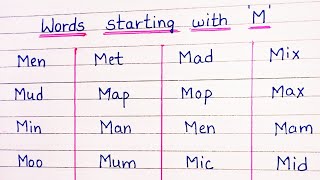 Words starting with 'M'
Men Met Mad Mix
Mud Map Mop Max
Min Man Men Mam
Moo Mum Mic Mid